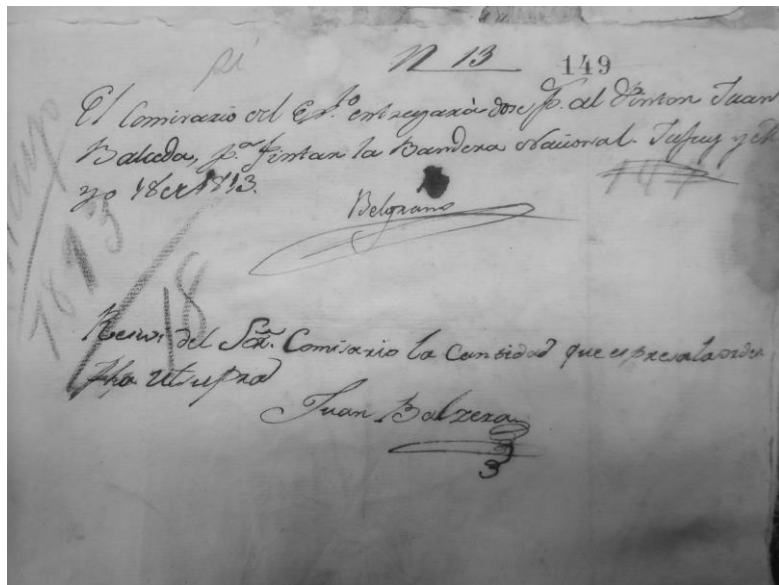 N 13 149
El Comisario del Exto. entregará doce ps. al Pintor Juan
Balceda, pa. Pintar la Bandera Nacional. Jujuy y Ma
yo 18 de 1813.
Belgrano
Mayo
18
1813
Reciví del Sor. Comisario la Cantidad que espresa la orden
fha utsupra
Juan Balzera